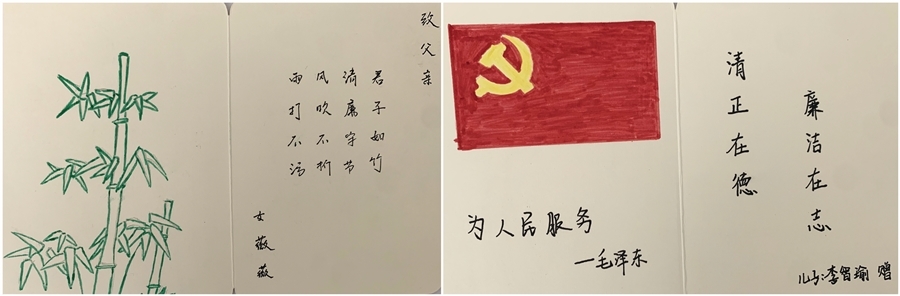 致父亲
君子如竹
清廉守节
风吹不折
雨打不污
女薇薇
为人民服务
—毛泽东
廉洁在志
清正在德
李智瑜 赠